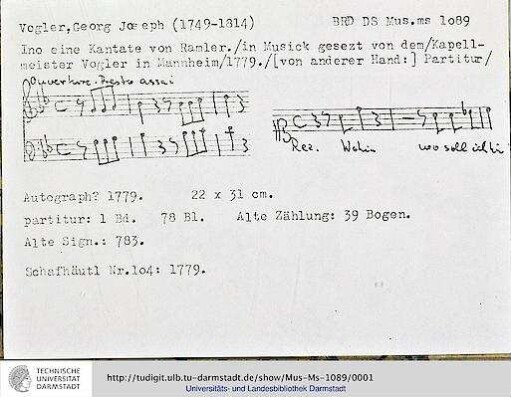 Vogler,Georg Joseph (1749-1814) BRD DS Mus.ms 1o89
Ino eine Kantate von Ramler./in Musick gesezt von dem/Kapell-
meister Vogler in Mannheim/1779./[von anderer Hand:] Partitur/
Ouverture. Presto assai
Rez. Wohin wo soll ich hin
Autograph? 1779. 22 x 31 cm.
partitur: 1 Bd. 78 Bl. Alte Zählung: 39 Bogen.
Alte Sign.: 783.
Schafhäutl Nr.1o4: 1779.
TECHNISCHE
UNIVERSITÄT
DARMSTADT
http://tudigit.ulb.tu-darmstadt.de/show/Mus-Ms-1089/0001
Universitäts- und Landesbibliothek Darmstadt